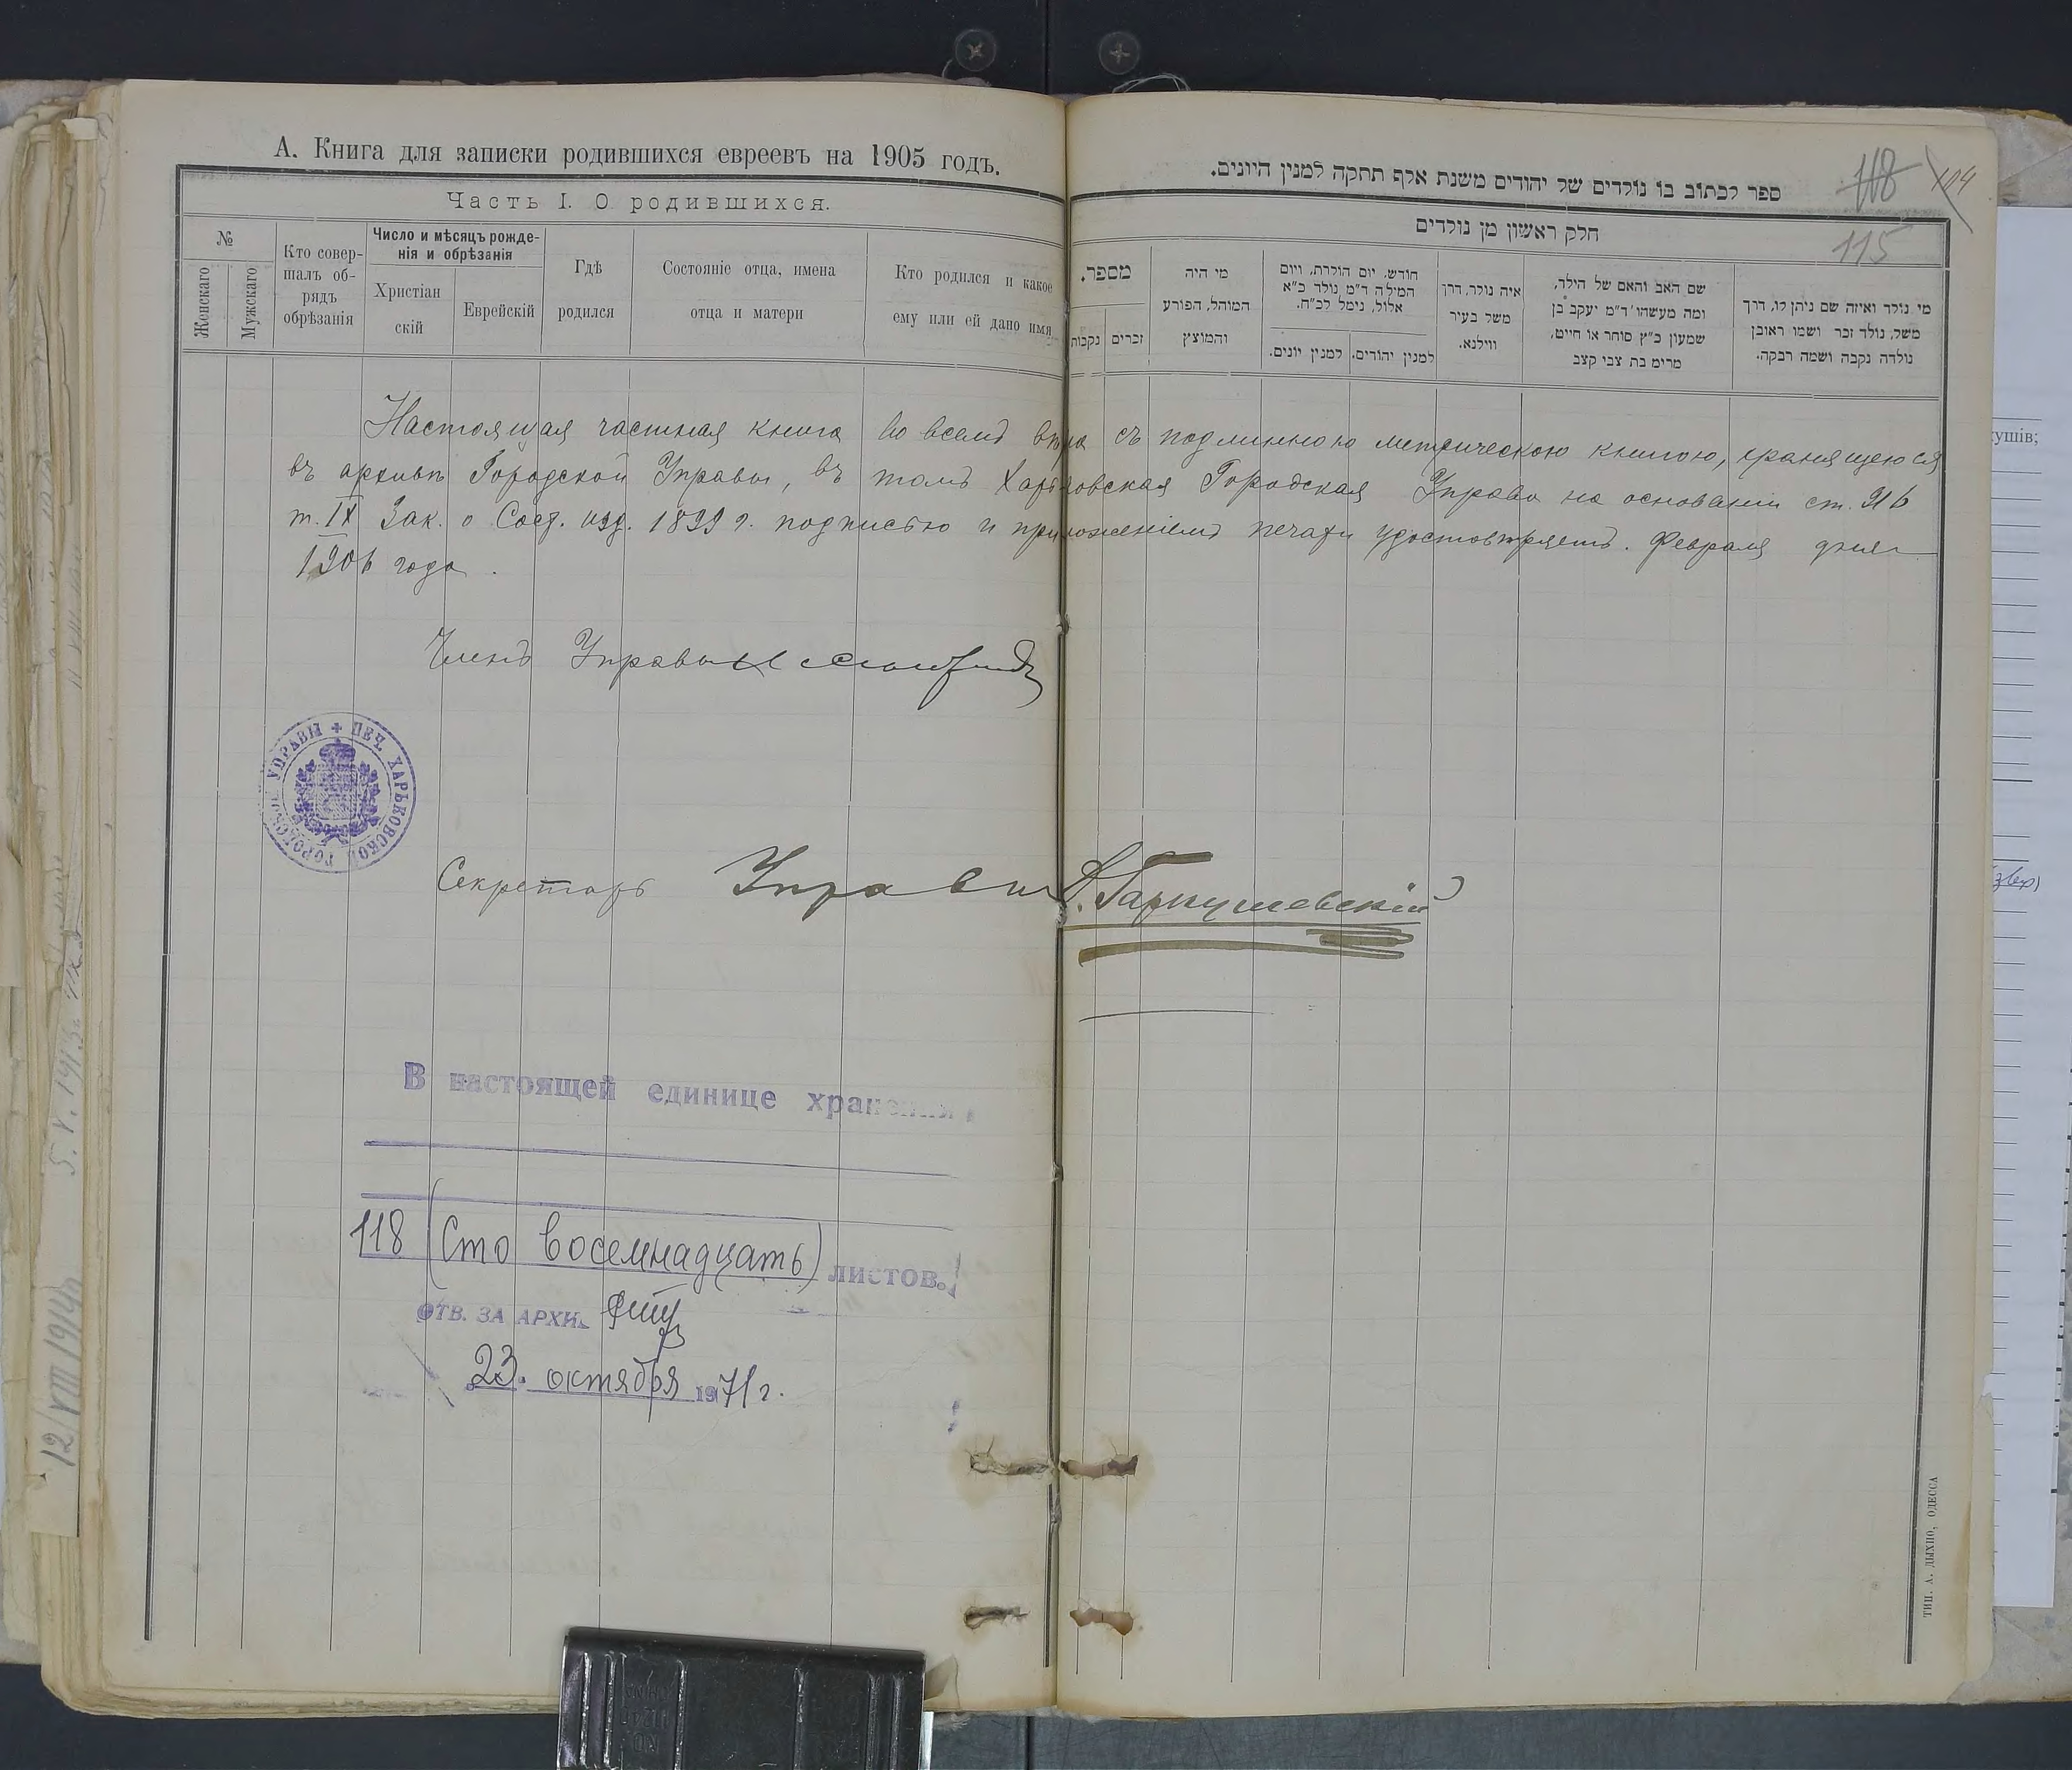 А. Книга для записки родившихся евреевъ на 1905 годъ.
Часть I. О родившихся.
№
Женскаго
Мужскаго
Кто совер-
шалъ об-
рядъ
обрѣзанія
Число и мѣсяцъ рожде-
нія и обрѣзанія
Христіан
скій
Еврейскій
Гдѣ
родился
Состояніе отца, имена
отца и матери
Кто родился и какое
ему или ей дано имя
ספר לכתוב בו נולדים של יהודים משנת אלף תתקה למנין היונים.
118
104
115
חלק ראשון מן נולדים
מספר.
נקבות
זכרים
מי היה
המוהל, הפורע
והמוצץ
חודש, יום הולדת, ויום
המילה ד"מ נולד כ"א
אלול, נימל לכ"ח.
למנין יונים.
למנין יהודים.
איה נולד, דרן
משל בעיר
ווילנא.
שם האב והאם של הילד,
ומה מעשהו ד"מ יעקב בן
שמעון כ"ץ סוחר או חייט,
מרימ בת צבי קצב
מי נולד ואיזה שם ניתן לו, דרך
משל, נולד זכר ושמו ראובן
נולדה נקבה ושמה רבקה.
Настоящая частная книга во всемъ вѣрна съ подлинною метрическою книгою, хранящеюся
въ архивѣ Городской Управы, въ томъ Харьковская Городская Управа на основаніи ст. 916
т. IX Зак. о Сост. изд. 1899 г. подписью и приложеніемъ печати удостовѣряетъ. Февраля дня
1906 года.
Членъ Управы
ПЕЧ. ХАРЬКОВСКОЙ ГОРОДСКОЙ УПРАВЫ
Секретарь Управы Гаркушевскій
В настоящей единице хранения
118 (Сто восемнадцать) листов.
ОТВ. ЗА АРХИВ
23. октября 1971 г.
ТИП. А. ДЫХНО, ОДЕССА
12/VIII 1914
5.V.1913.